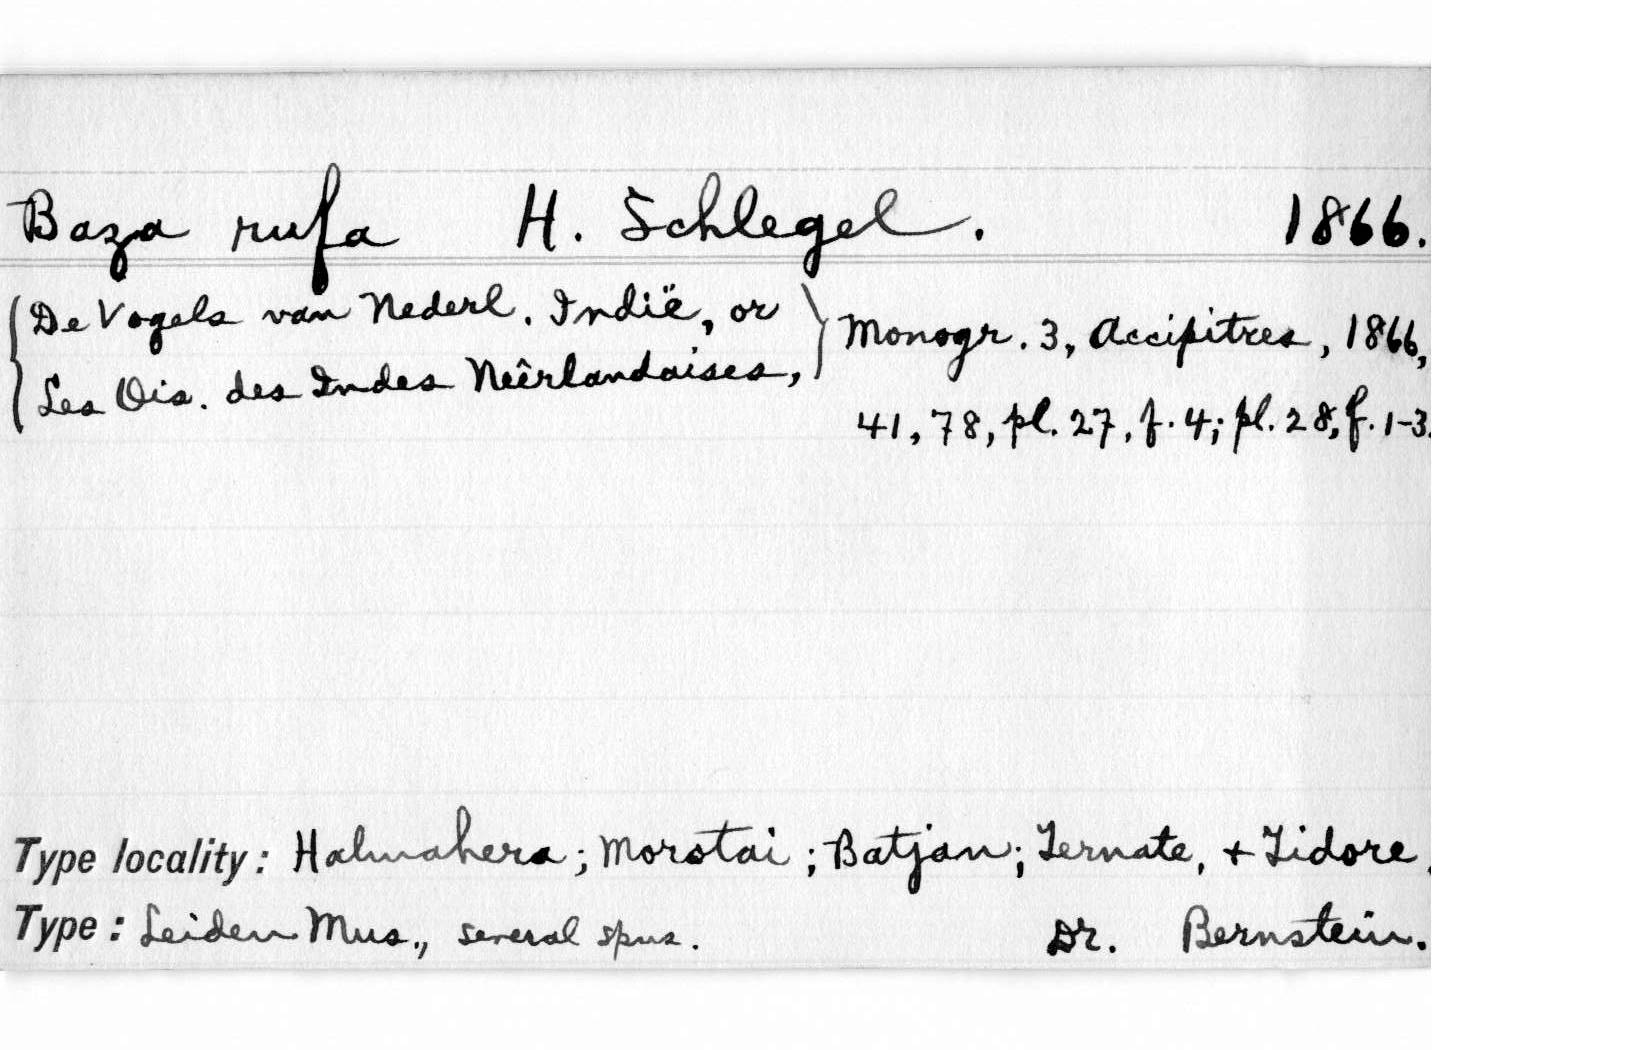 Baza rufa H. Schlegel. 1866.
{De Vogels van Nederl. Indië, or
Les Ois. des Indes Neêrlandaises,} Monogr. 3, Accipitres, 1866,
41, 78, pl. 27, f. 4; pl. 28, f. 1-3.
Type locality: Halmahera; Morotai; Batjan; Ternate, + Tidore.
Type: Leiden Mus., several spns. Dr. Bernstein.